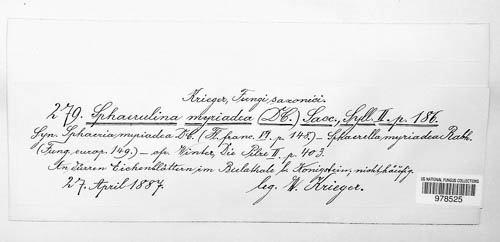 Krieger, Fungi saxonici.
279. Sphaerulina myriadea (DC.) Sacc., Syll. II. p. 186.
Syn. Sphaeria myriadea DC. (Fl. franc. VI. p. 145) – Sphaerella myriadea Rabh.
(Fung. europ. 149.) – cfr. Winter, Die Pilze II. p. 403.
An dürren Eichenblättern im Bielathale b. Königstein; nicht häufig.
27. April 1887. leg. W. Krieger.
US NATIONAL FUNGUS COLLECTIONS
978525